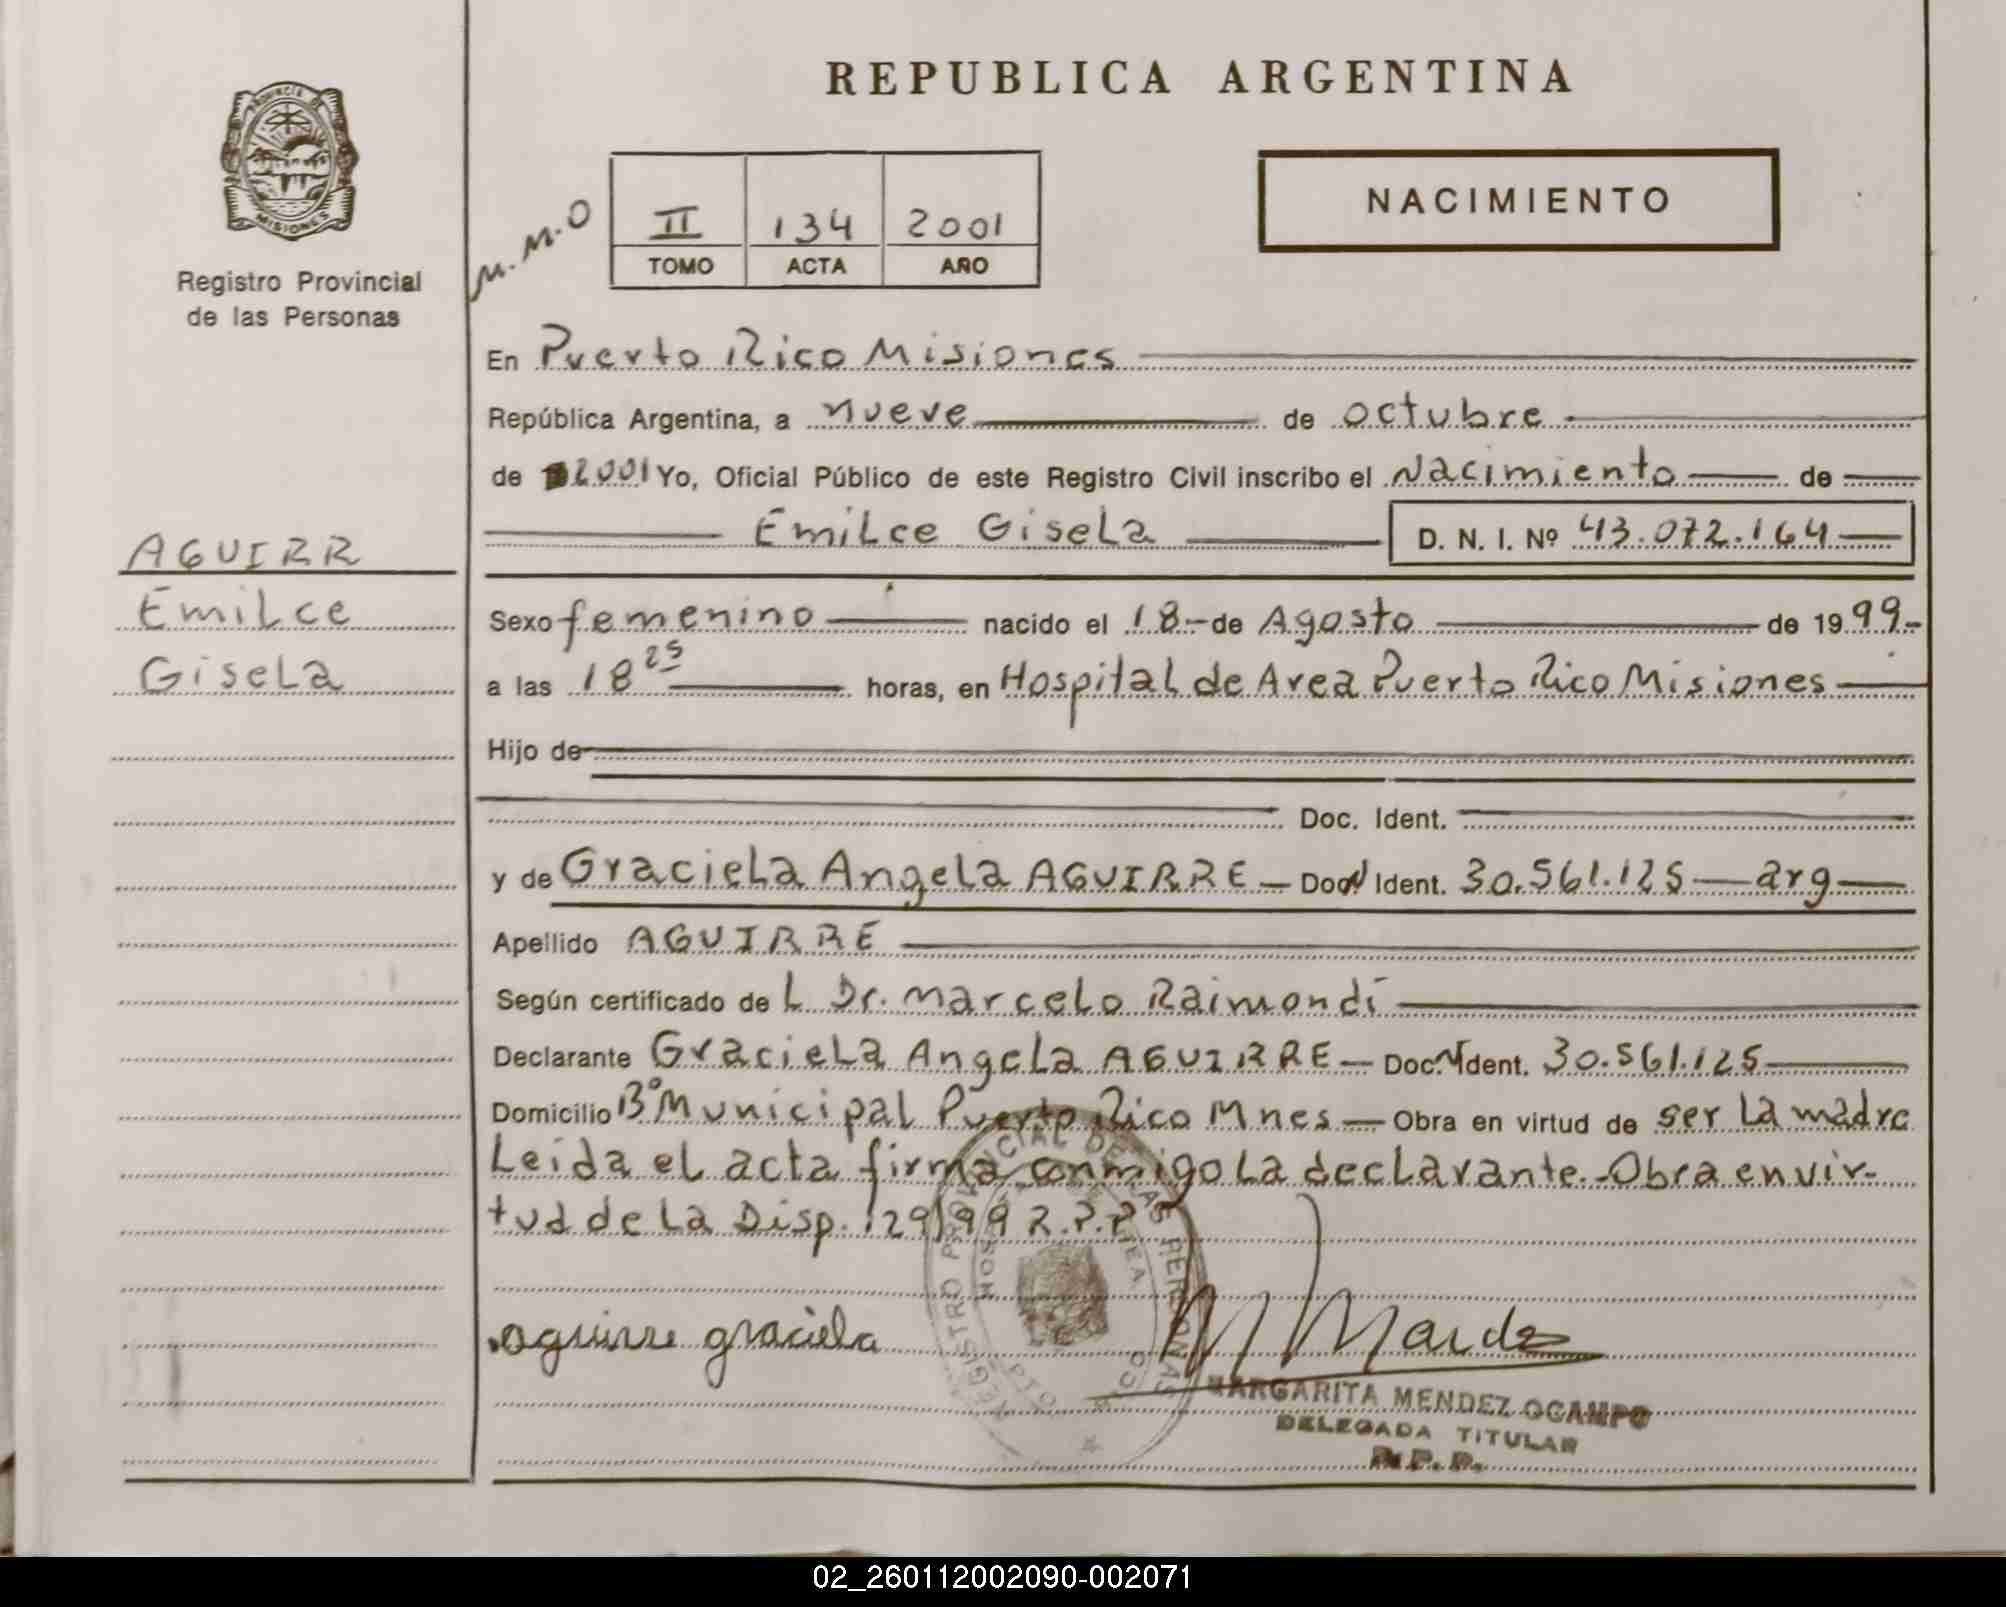 REPUBLICA ARGENTINA
PROVINCIA DE
MISIONES
Registro Provincial
de las Personas
M.M.O
II 134 2001
TOMO ACTA AÑO
NACIMIENTO
AGUIRR
Emilce
Gisela
En Puerto Rico Misiones
República Argentina, a nueve de octubre
de 2001 Yo, Oficial Público de este Registro Civil inscribo el Nacimiento de
Emilce Gisela D. N. I. Nº 43.072.164
Sexo femenino nacido el 18 de Agosto de 1999
a las 18 25 horas, en Hospital de Area Puerto Rico Misiones
Hijo de
Doc. Ident.
y de Graciela Angela AGUIRRE Doc Ident. 30.561.125 arg
Apellido AGUIRRE
Según certificado de L Dr. Marcelo Raimondi
Declarante Graciela Angela AGUIRRE Doc. Ident. 30.561.125
Domicilio Bº Municipal Puerto Rico Mnes Obra en virtud de ser la madre
Leida el acta firma conmigo la declarante.-Obra en vir-
tud de la Disp. 129/99 R.P.P
REGISTRO PROVINCIAL DE LAS PERSONAS
PTO. RICO
aguirre graciela
MARGARITA MENDEZ OCAMPO
DELEGADA TITULAR
R.P.P.
02_260112002090-002071